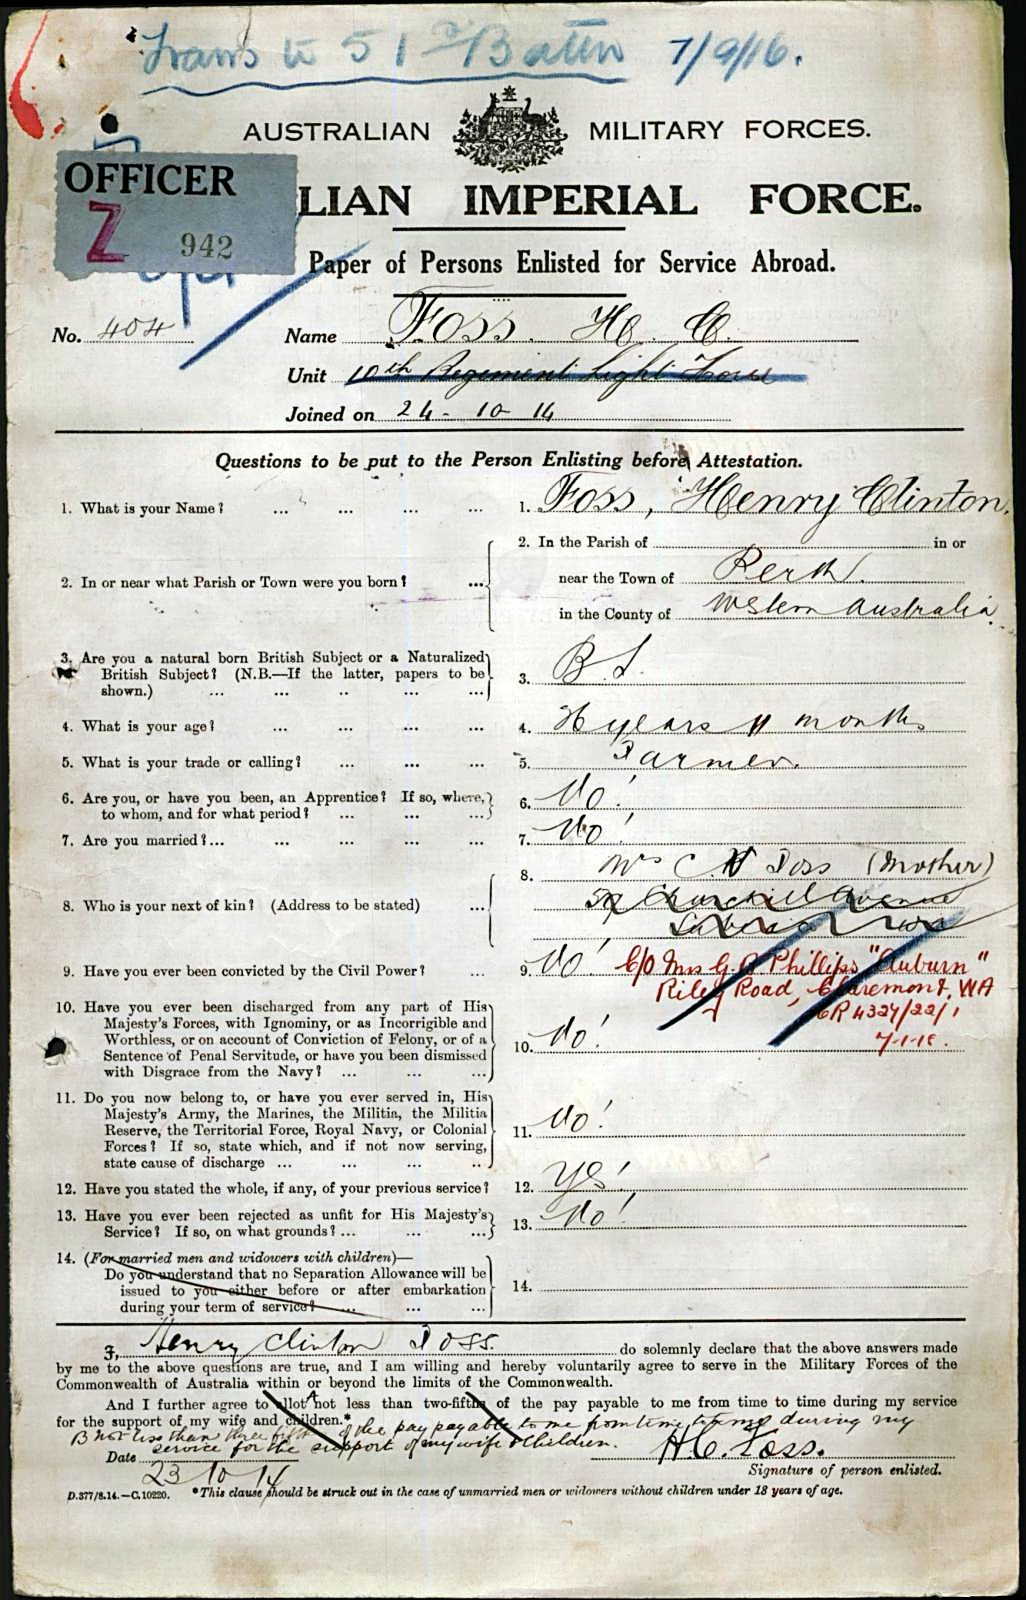 Trans to 51st Battn 7/9/16.
AUSTRALIAN MILITARY FORCES.
OFFICER
Z 942
LIAN IMPERIAL FORCE.
Paper of Persons Enlisted for Service Abroad.
No. 404 Name Foss. H. C.
Unit 10th Regiment Light Horse
Joined on 24-10-14
Questions to be put to the Person Enlisting before Attestation.
1. What is your Name? ... ... ... ... 1. Foss, Henry Clinton.
2. In or near what Parish or Town were you born? ... 2. In the Parish of in or
near the Town of Perth.
in the County of Western Australia.
3. Are you a natural born British Subject or a Naturalized
British Subject? (N.B.—If the latter, papers to be
shown.) ... ... .. ... ... 3. B.S.
4. What is your age? ... ... ... ... 4. years 11 months
5. What is your trade or calling? ... ... ... 5. Farmer.
6. Are you, or have you been, an Apprentice? If so, where,
to whom, and for what period? ... ... ... 6. No!
7. Are you married?... ... ... ... ... 7. No!
8. Who is your next of kin? (Address to be stated) ... 8. Mrs C. H Foss (Mother)
Churchill Avenue
Subiaco
9. Have you ever been convicted by the Civil Power? ... 9. No! C/O Mrs G. B Phillips "Auburn"
Riley Road, Claremont, WA
BR 4324/22/1
7-1-18.
10. Have you ever been discharged from any part of His
Majesty's Forces, with Ignominy, or as Incorrigible and
Worthless, or on account of Conviction of Felony, or of a
Sentence of Penal Servitude, or have you been dismissed
with Disgrace from the Navy? ... ... ... 10. No!
11. Do you now belong to, or have you ever served in, His
Majesty's Army, the Marines, the Militia, the Militia
Reserve, the Territorial Force, Royal Navy, or Colonial
Forces? If so, state which, and if not now serving,
state cause of discharge ... ... ... .. 11. No!
12. Have you stated the whole, if any, of your previous service? 12. Yes!
13. Have you ever been rejected as unfit for His Majesty's
Service? If so, on what grounds? ... ... ... 13. No!
14. (For married men and widowers with children)—
Do you understand that no Separation Allowance will be
issued to you either before or after embarkation
during your term of service? ... ... ... 14.
I, Henry Clinton Foss. do solemnly declare that the above answers made
by me to the above questions are true, and I am willing and hereby voluntarily agree to serve in the Military Forces of the
Commonwealth of Australia within or beyond the limits of the Commonwealth.
And I further agree to allot A not less than two-fifths of the pay payable to me from time to time during my service
for the support of my wife and children.*
B not less than three fifths of the pay payable to me from time to time during my
service for the support of my wife & Children.
Date 23 10 14 H.C. Foss.
Signature of person enlisted.
D.377/8.14.—C.10220. *This clause should be struck out in the case of unmarried men or widowers without children under 18 years of age.